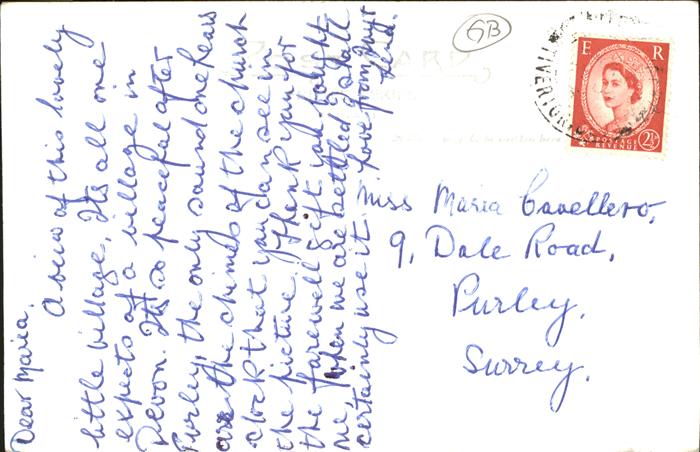 Dear Maria,
A view of this lovely
little village. Its all one
expects of a village in
Devon. Its so peaceful after
Purley, the only sound one hears
are the chimes of the church
clock that you can see in
the picture. Thank you for
the farewell gift you bought
me, when we are settled I shall
certainly use it. Love from
GB
E R
POSTAGE
REVENUE
2½D
TIVERTON
Miss Maria Cavellero,
9, Dale Road,
Purley,
Surrey.